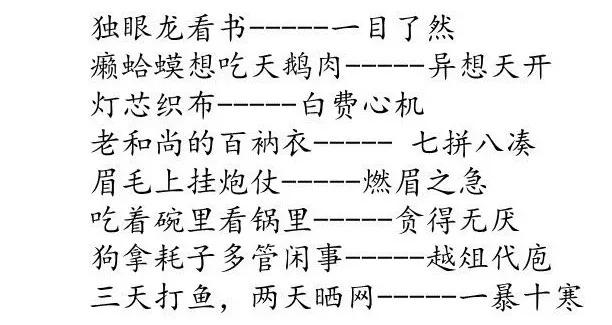 独眼龙看书-----一目了然
癞蛤蟆想吃天鹅肉-----异想天开
灯芯织布-----白费心机
老和尚的百衲衣----- 七拼八凑
眉毛上挂炮仗-----燃眉之急
吃着碗里看锅里-----贪得无厌
狗拿耗子多管闲事-----越俎代庖
三天打鱼，两天晒网-----一暴十寒